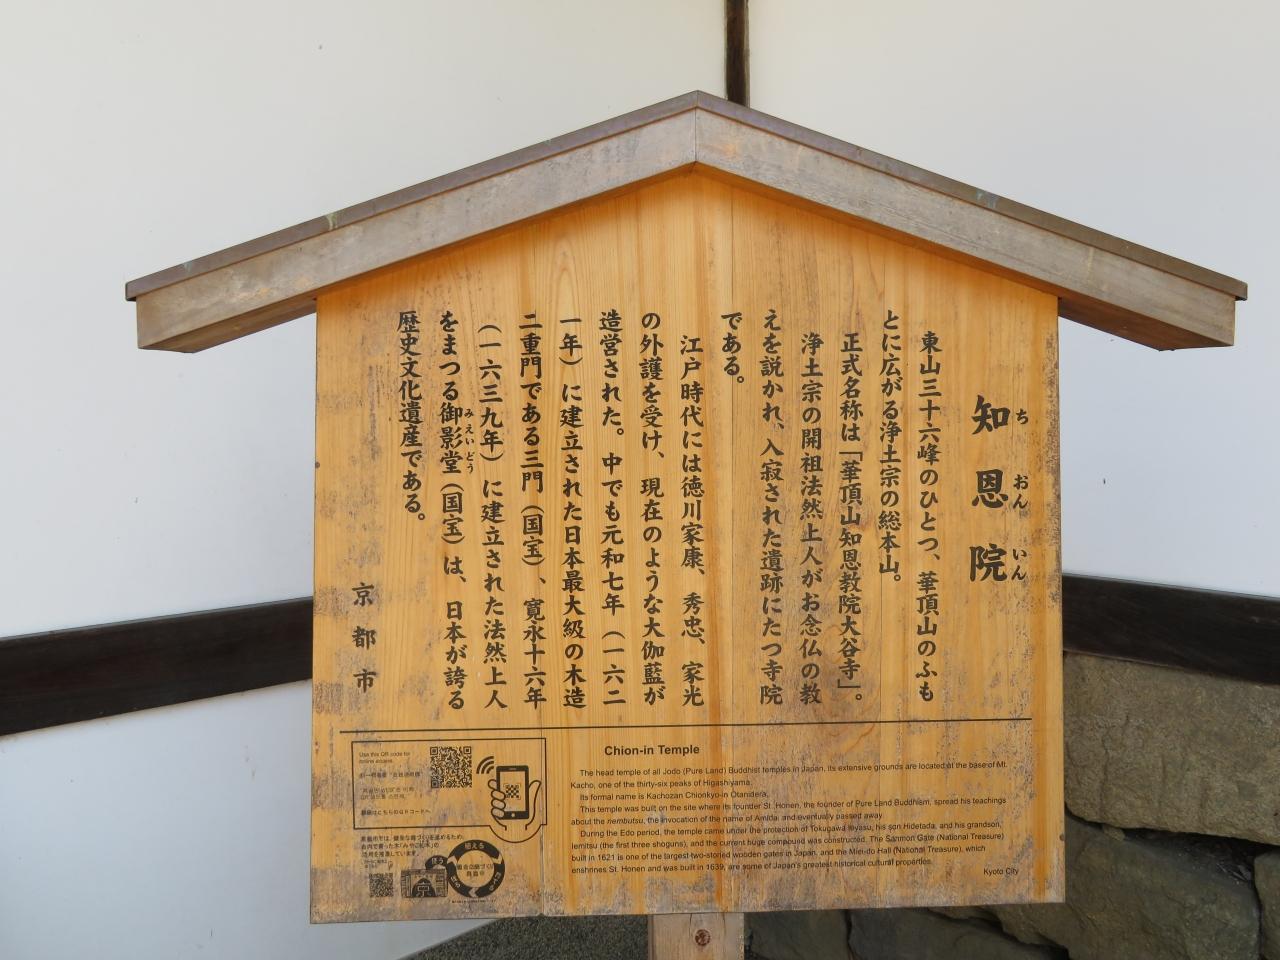 知恩院
ちおんいん
東山三十六峰のひとつ、華頂山のふも
とに広がる浄土宗の総本山。
正式名称は「華頂山知恩教院大谷寺」。
浄土宗の開祖法然上人がお念仏の教
えを説かれ、入寂された遺跡にたつ寺院
である。
江戸時代には徳川家康、秀忠、家光
の外護を受け、現在のような大伽藍が
造営された。中でも元和七年（一六二
一年）に建立された日本最大級の木造
二重門である三門（国宝）、寛永十六年
（一六三九年）に建立された法然上人
をまつる御影堂（国宝）は、日本が誇る
みえいどう
歴史文化遺産である。
京都市
Use this QR code for
online access.
Chion-in Temple
The head temple of all Jodo (Pure Land) Buddhist temples in Japan, its extensive grounds are located at the base of Mt.
Kacho, one of the thirty-six peaks of Higashiyama.
Its formal name is Kachozan Chionkyo-in Otanidera.
This temple was built on the site where its founder St. Honen, the founder of Pure Land Buddhism, spread his teachings
about the nembutsu, the invocation of the name of Amida, and eventually passed away.
During the Edo period, the temple came under the protection of Tokugawa Ieyasu, his son Hidetada, and his grandson,
Iemitsu (the first three shoguns), and the current huge compound was constructed. The Sanmon Gate (National Treasure)
built in 1621 is one of the largest two-storied wooden gates in Japan, and the Miei-do Hall (National Treasure), which
enshrines St. Honen and was built in 1639, are some of Japan's greatest historical cultural properties.
Kyoto City